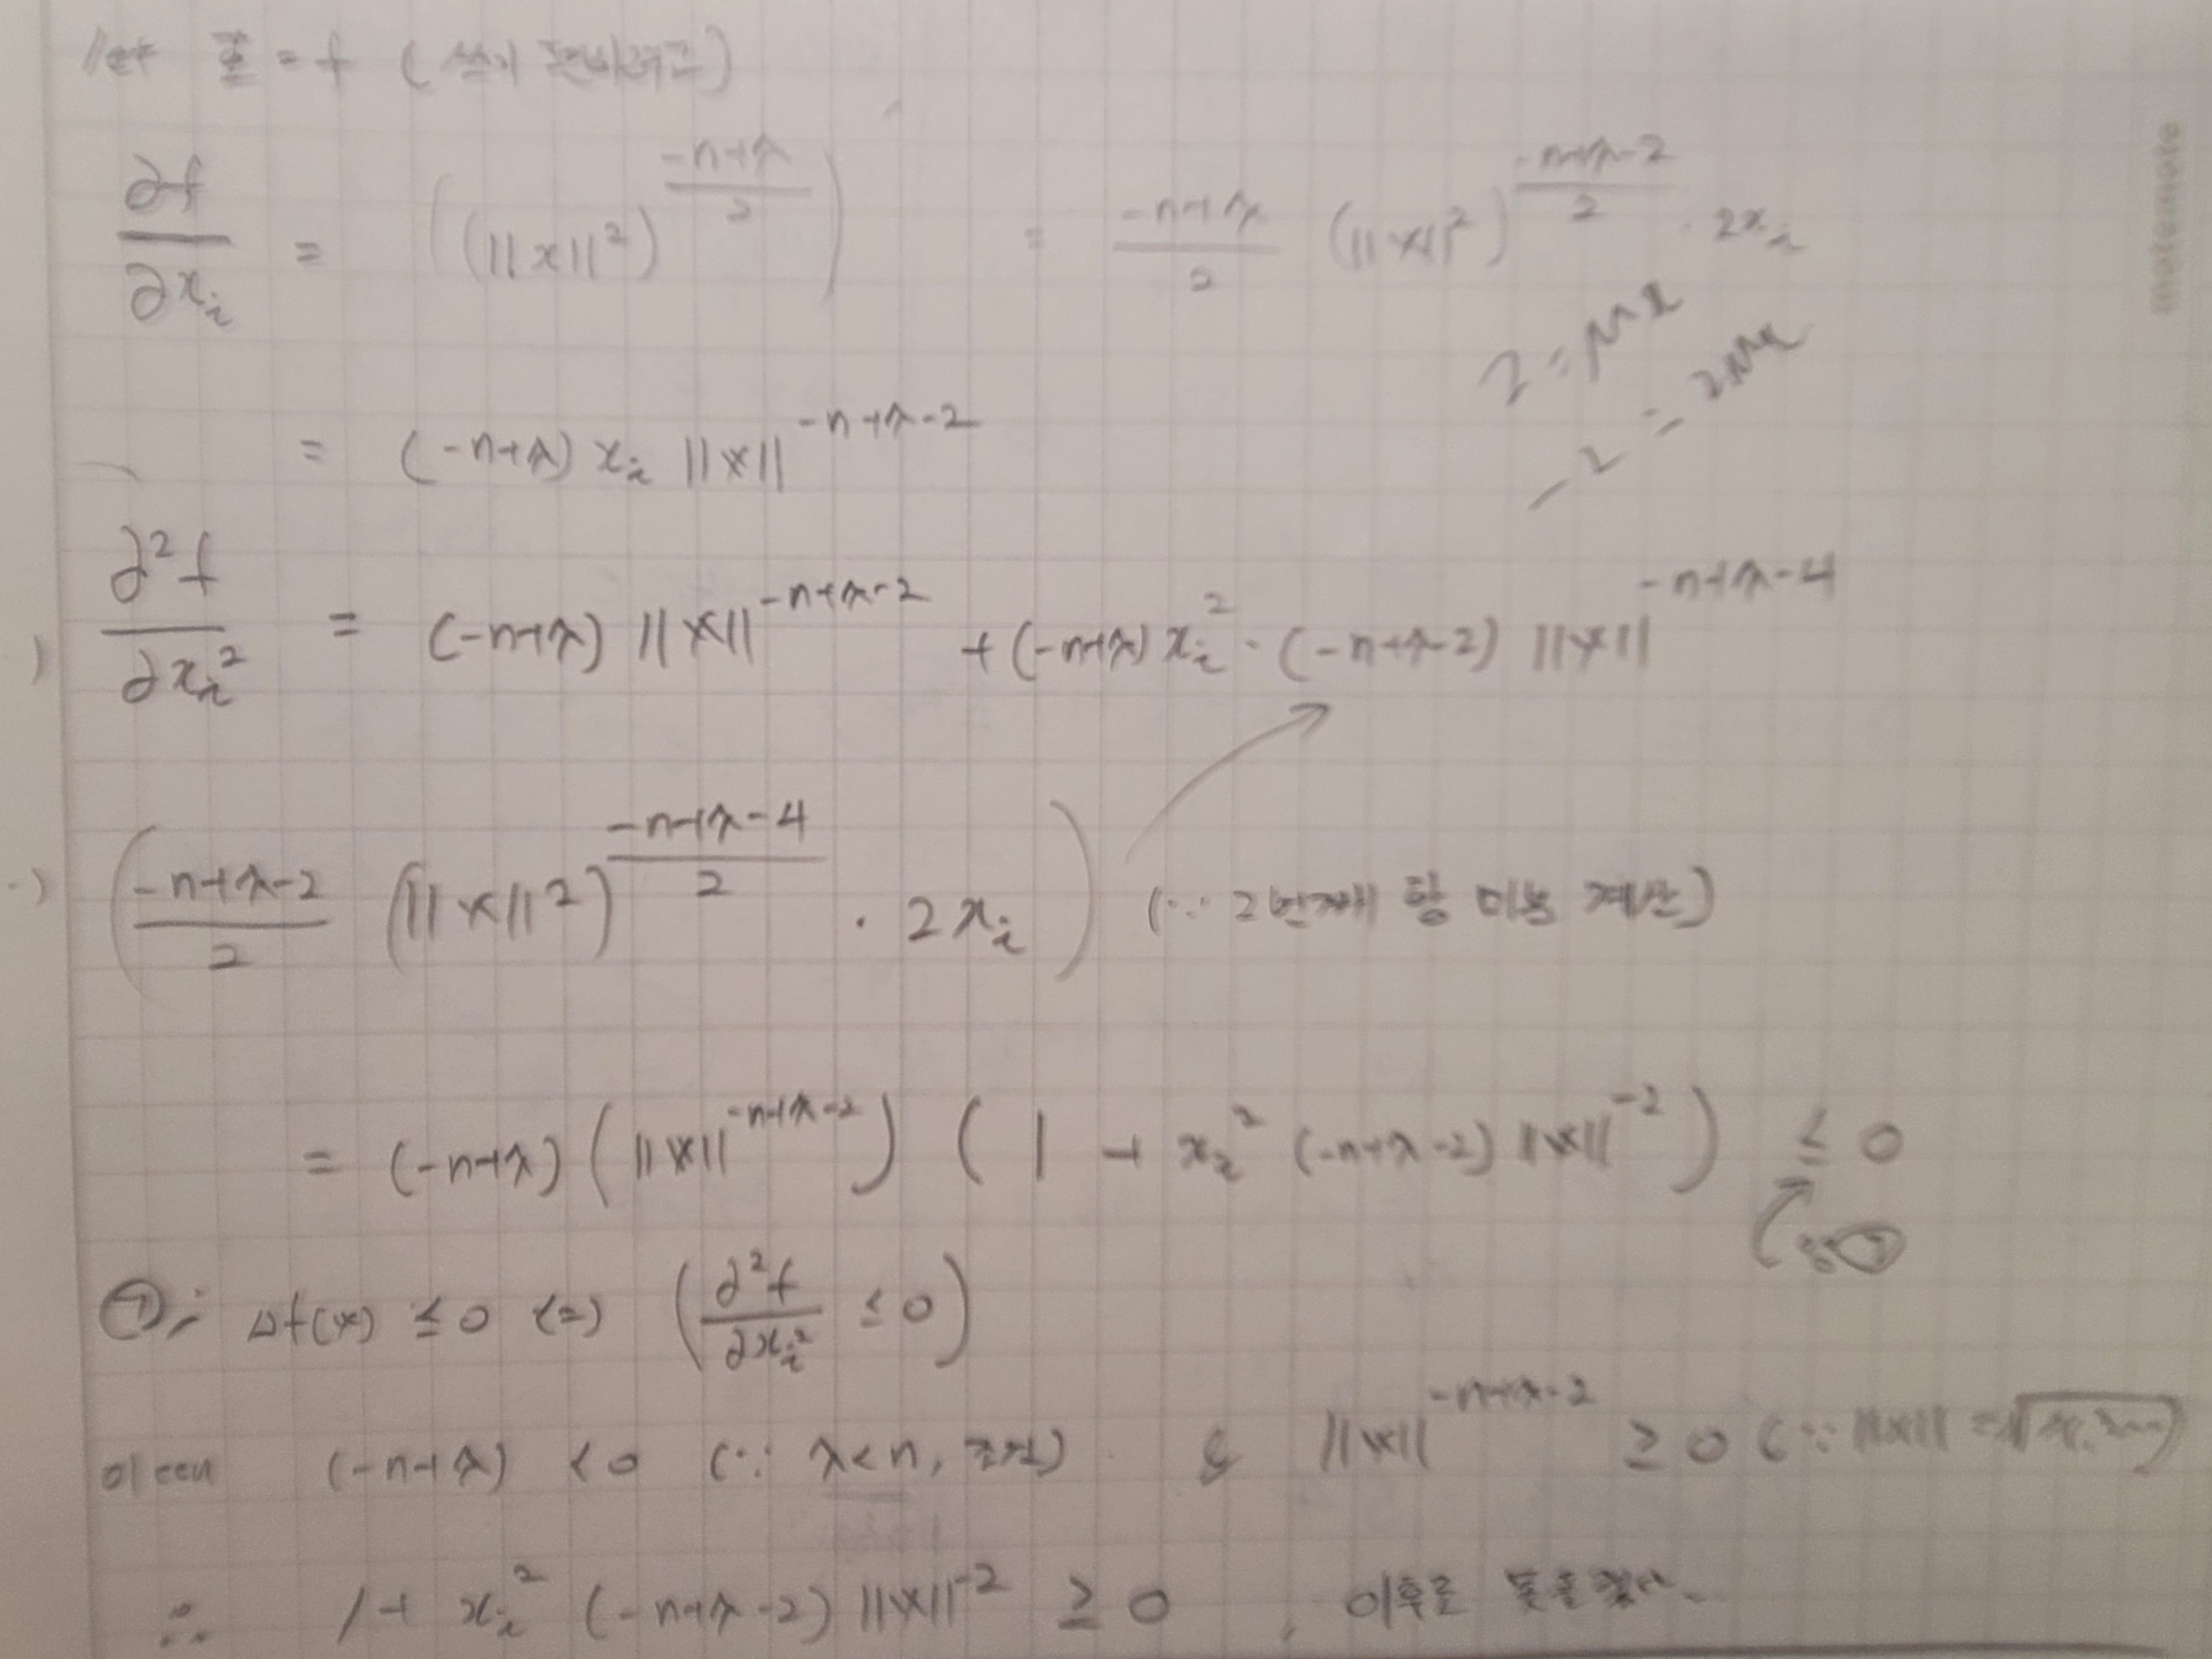 let Φ = f (쓰기 편하려고)
∂f/∂xᵢ = ((||x||²)^((-n+λ)/2)) = (-n+λ)/2 (||x||²)^((-n+λ-2)/2) · 2xᵢ
= (-n+λ) xᵢ ||x||^(-n+λ-2)
∂²f/∂xᵢ² = (-n+λ) ||x||^(-n+λ-2) + (-n+λ) xᵢ² · (-n+λ-2) ||x||^(-n+λ-4)
((-n+λ-2)/2 (||x||²)^((-n+λ-4)/2) · 2xᵢ) (∵ 2번째 항 미분 계산)
= (-n+λ) (||x||^(-n+λ-2)) (1 + xᵢ² (-n+λ-2) ||x||^(-2)) ≤ 0
①; Δf(x) ≤ 0 <=> (∂²f/∂xᵢ² ≤ 0)
이 때 (-n+λ) < 0 (∵ λ<n, 조건) & ||x||^(-n+λ-2) ≥ 0 (∵ ||x|| =
∴ 1 + xᵢ² (-n+λ-2) ||x||^(-2) ≥ 0, 이후로 못풀겠다.
moternote